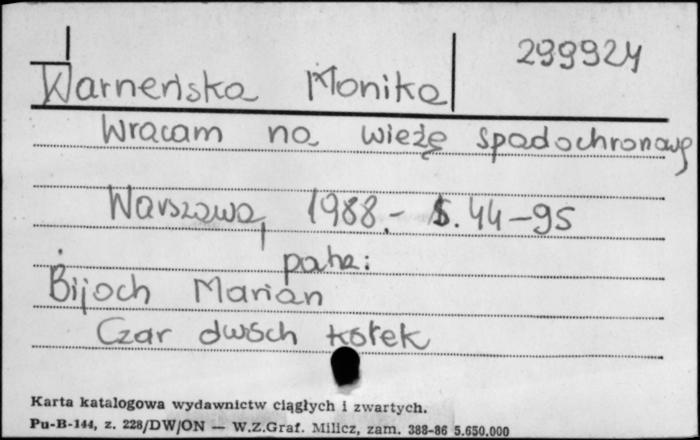 299924
Warneńska Monika
Wracam na wieżę spadochronową
Warszawa, 1988.- S. 44-95
patrz:
Bijoch Marian
Czar dwóch kółek
Karta katalogowa wydawnictw ciągłych i zwartych.
Pu-B-144, z. 228/DW/ON — W.Z.Graf. Milicz, zam. 388-86 5.650.000